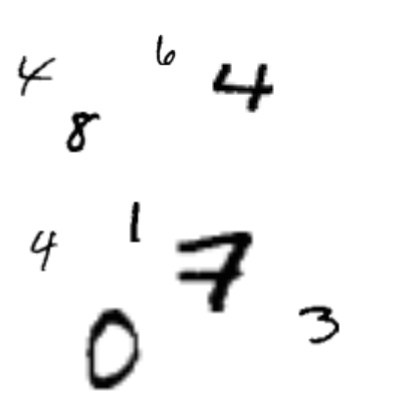 4 6 4
8
4 1 7
0 3